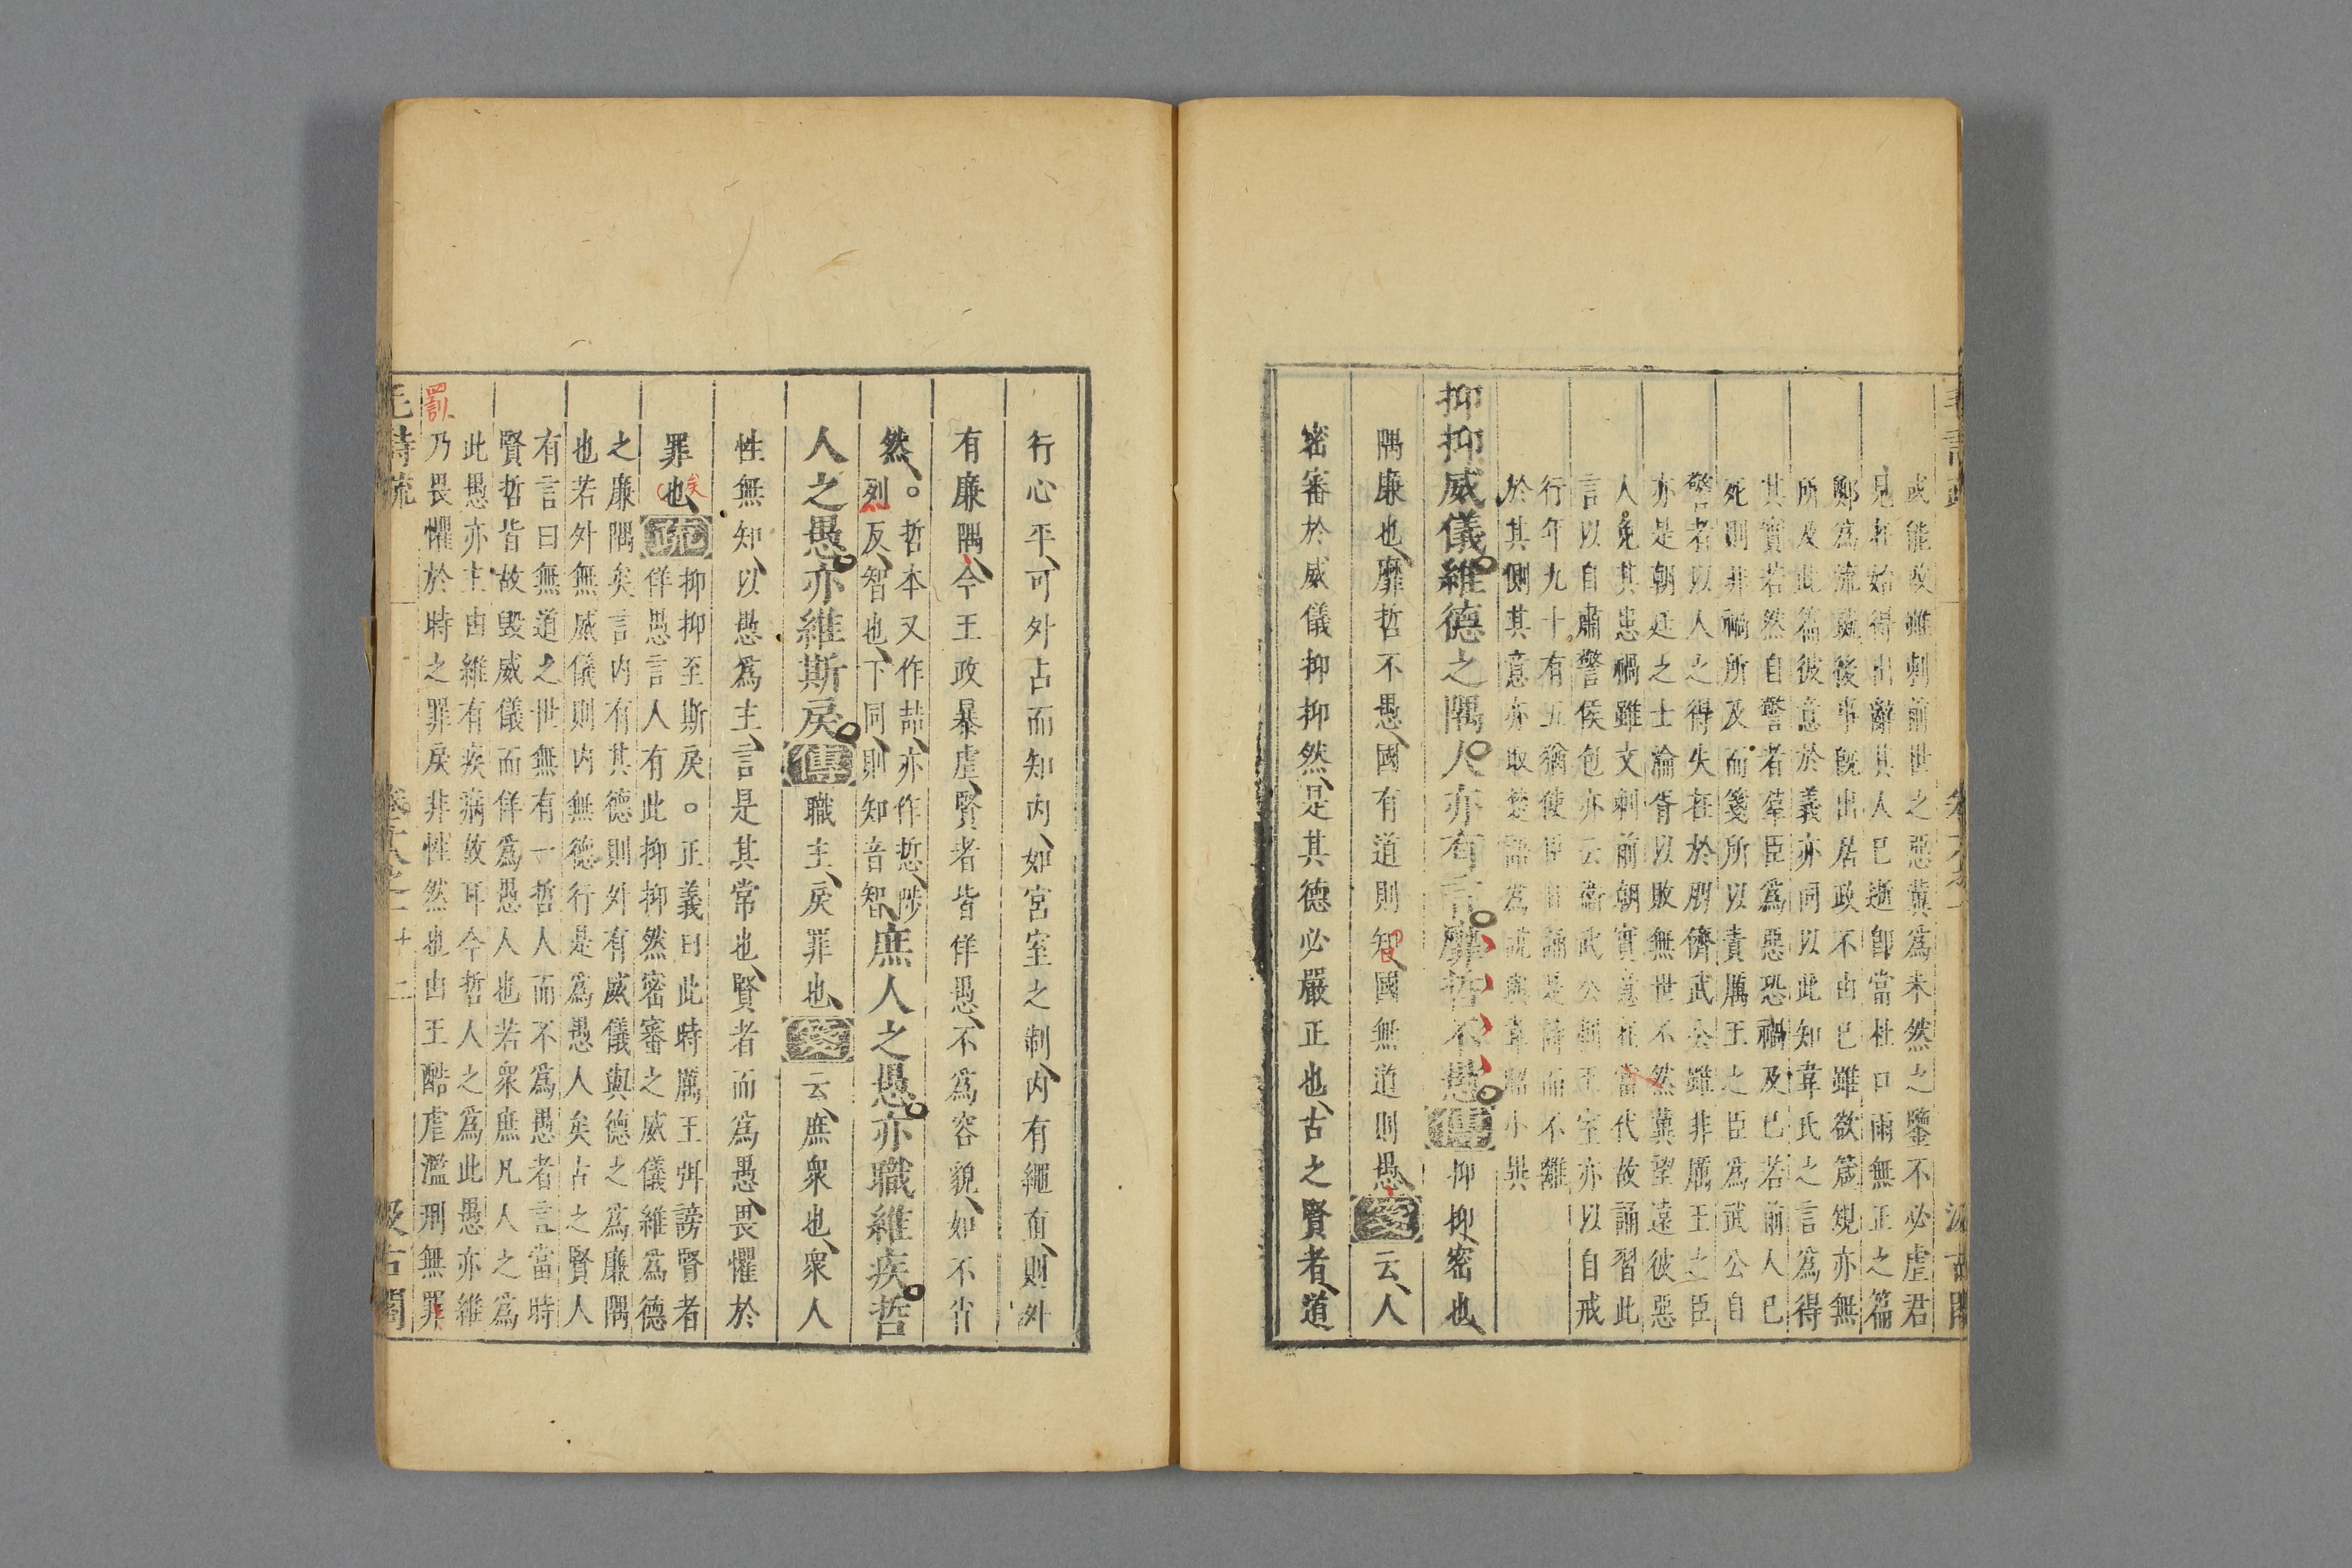 或能改雖刺前世之惡冀為未然之鑒不必虐君
見在始得出辭其人已逝卽當杜口雨無正之篇
鄭爲流彘後事旣出居政不由已雖欲箴規亦無
所及此篇彼意於義亦同以此知韋氏之言爲得
其實若然自警者羣臣爲惡恐禍及已若前人已
死則非禍所及而箋所以責厲王之臣爲武公自
警者以人之得失在於朋儕武公雖非厲王之臣
亦是朝廷之士淪胥以敗無世不然冀望遠彼惡
人免其患禍雖文刺前朝實意在當代故誦習此
言以自肅警侯包亦云衞武公刺王室亦以自戒
行年九十有五猶使臣日誦是詩而不離
於其側其意亦取楚語爲說與韋昭小異
抑抑威儀維德之隅人亦有言靡哲不愚傳抑抑密也
隅廉也靡哲不愚國有道則知國無道則愚箋云人
密審於威儀抑抑然是其德必嚴正也古之賢者道
行心平可外占而知內如宮室之制內有繩直則外
有廉隅今王政暴虐賢者皆佯愚不爲容貌如不肖
然。哲本又作喆亦作悊陟
烈反智也下同則知音智庶人之愚亦職維疾哲
人之愚亦維斯戾傳職主戾罪也箋云庶衆也衆人
性無知以愚爲主言是其常也賢者而爲愚畏懼於
罪也矣疏抑抑至斯戾。正義曰此時厲王弭謗賢者
佯愚言人有此抑抑然密審之威儀維爲德
之廉隅矣言內有其德則外有威儀與德之爲廉隅
也若外無威儀則內無德行是爲愚人矣古之賢人
有言曰無道之世無有一哲人而不爲愚者言當時
賢哲皆故毀威儀而佯爲愚人也若衆庶凡人之爲
此愚亦主由維有疾病故耳今哲人之爲此愚亦維
罰
乃畏懼於時之罪戾非性然也由王酷虐濫刑無罪
毛詩疏 卷十八之一 十二 汲古閣